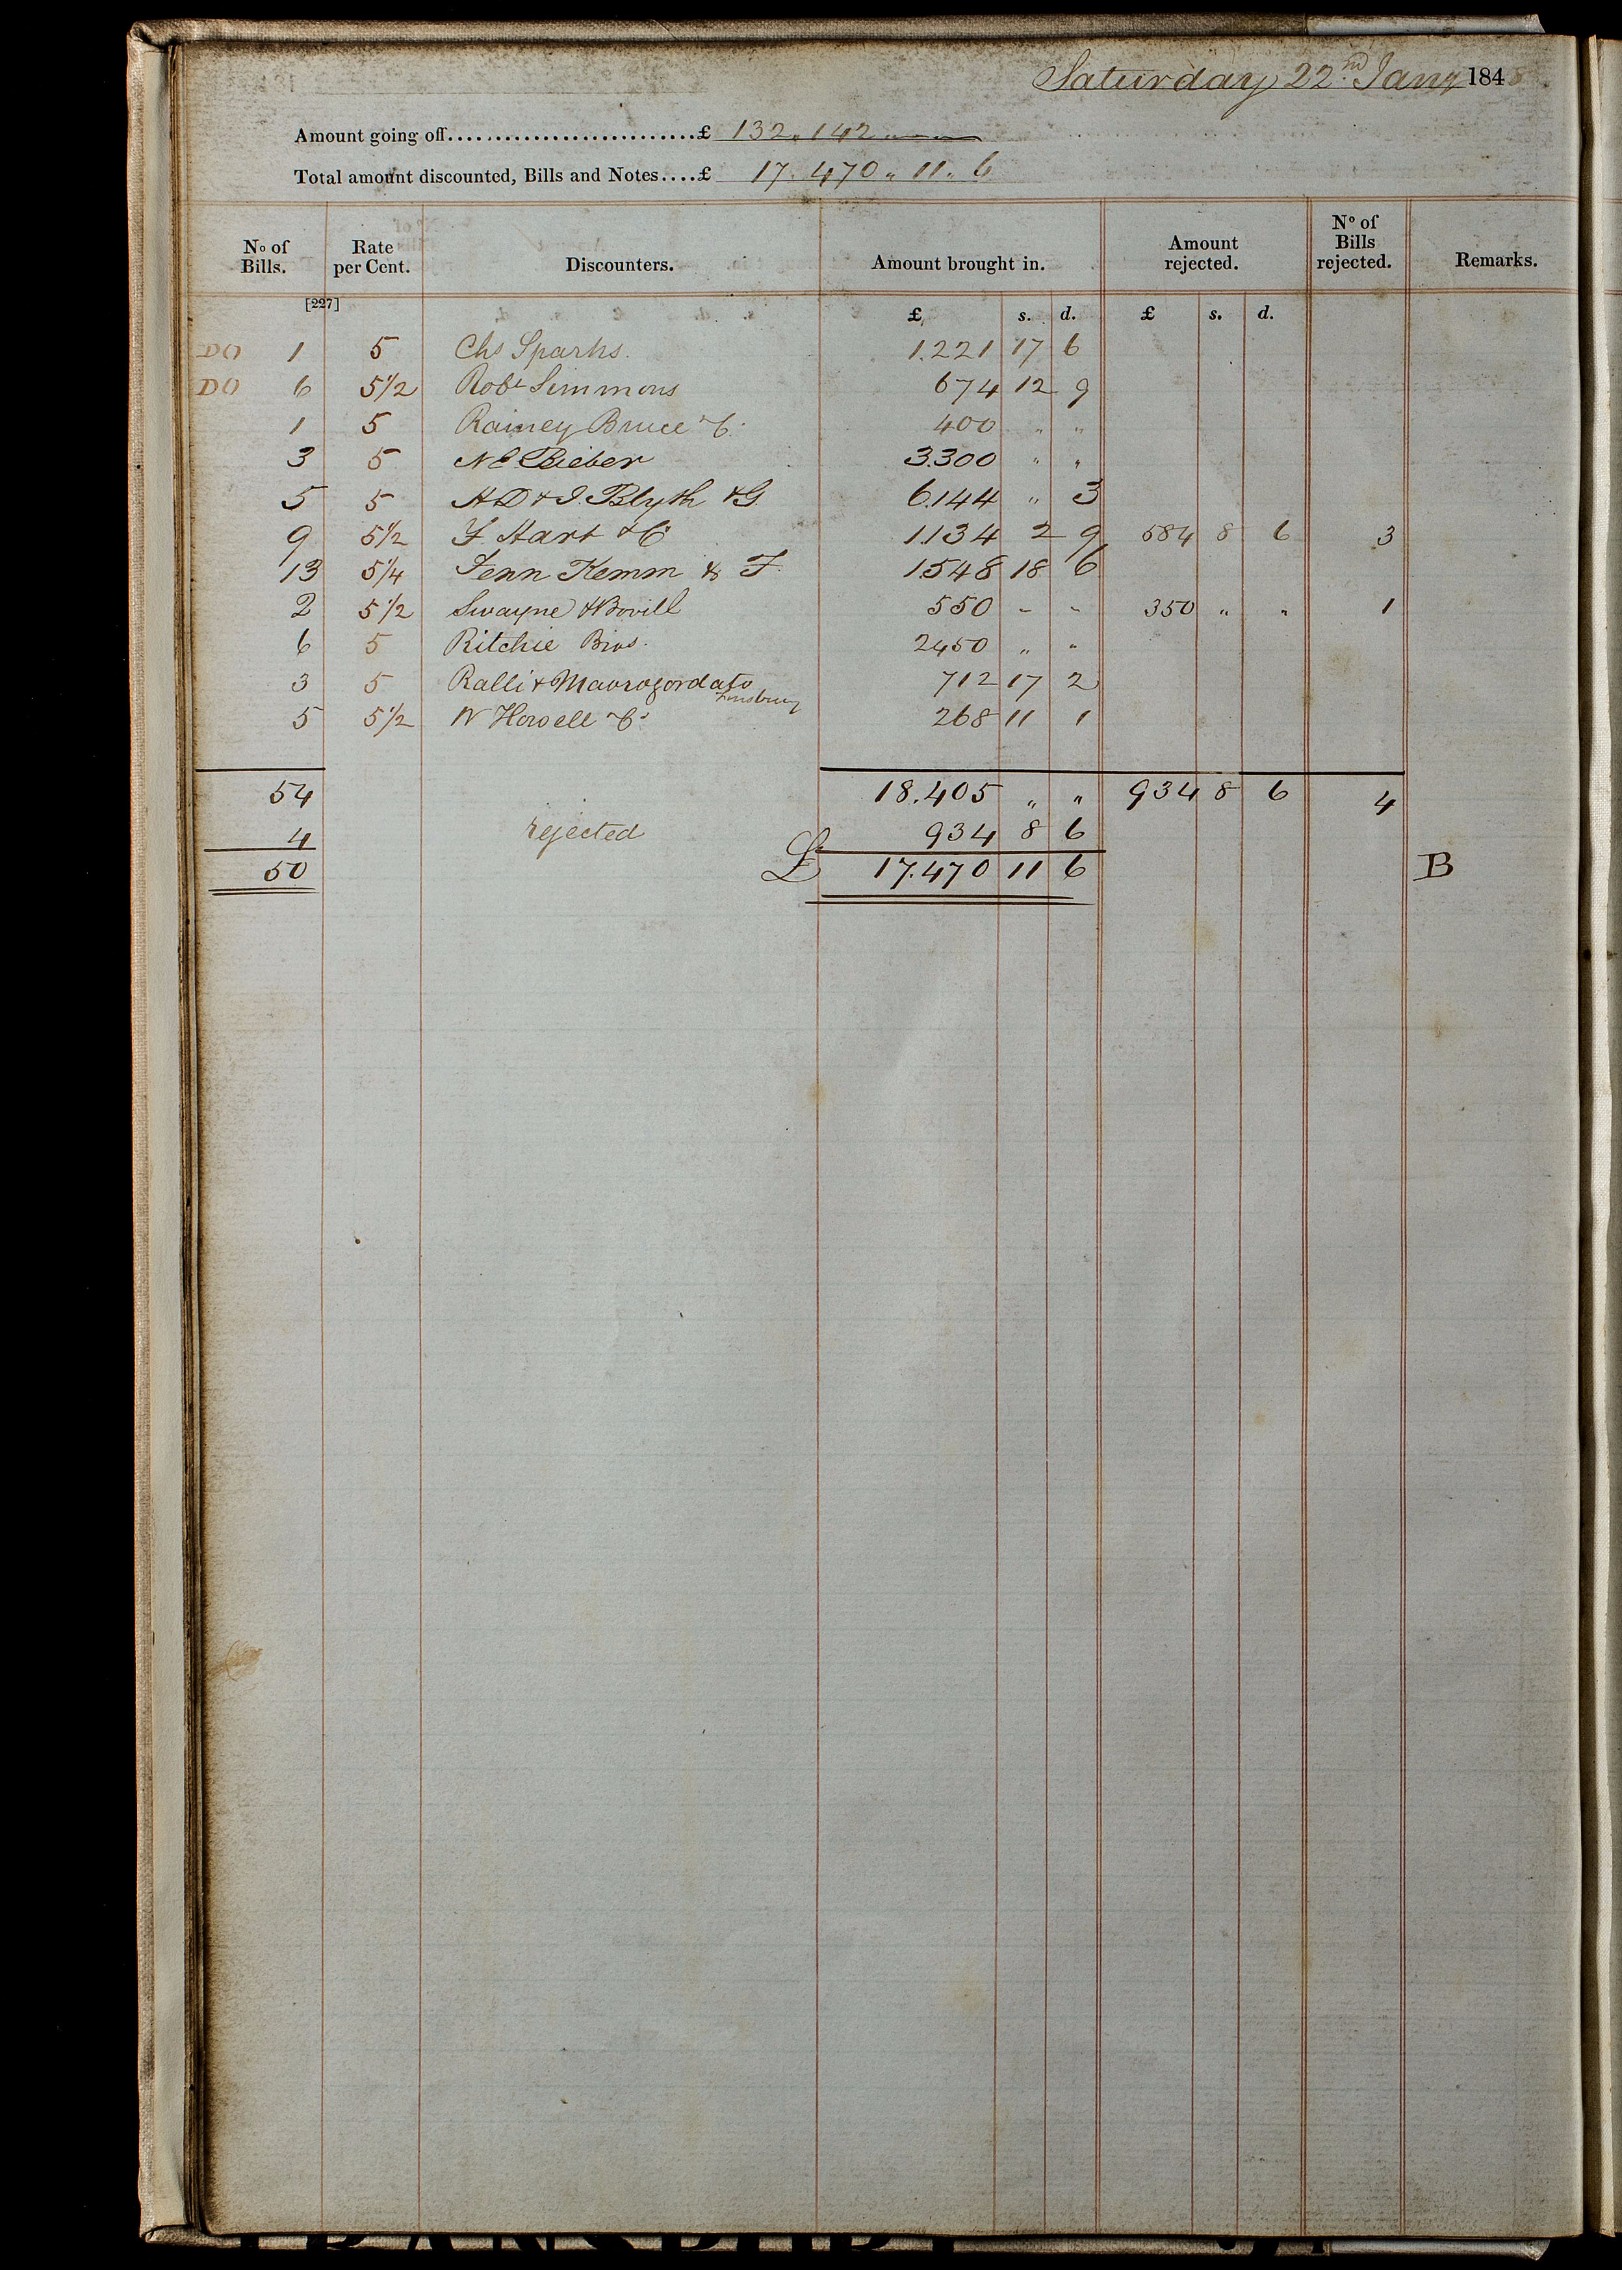 Saturday 22nd Jany 1848
Amount going off..........................£ 132,142 " — " —
Total amount discounted, Bills and Notes....£ 17.470 " 11 " 6
No of Bills. Rate per Cent. Discounters. Amount brought in. Amount rejected. No of Bills rejected. Remarks.
[227]
£ s. d. £ s. d.
DO 1 5 Chs Sparks. 1.221 17 6
DO 6 5 1/2 Robt Simmons 674 12 9
1 5 Rainey Bruce & Co 400 " "
3 5 N E Bieber 3.300 " "
5 5 H D & I. Blyth & G 6.144 " 3
9 5 1/2 F Hart & Co 1.134 2 9 584 8 6 3
13 5 1/4 Fenn Kemm & F. 1.548 18 6
2 5 1/2 Swayne & Bovill 550 - - 350 " " 1
6 5 Ritchie Bros. 2450 " "
3 5 Ralli & Mavrogordato 712 17 2
Finsbury
5 5 1/2 W Howell & Co 268 11 1
54 18.405 " " 934 8 6 4
4 rejected 934 8 6
50 £ 17.470 11 6 B